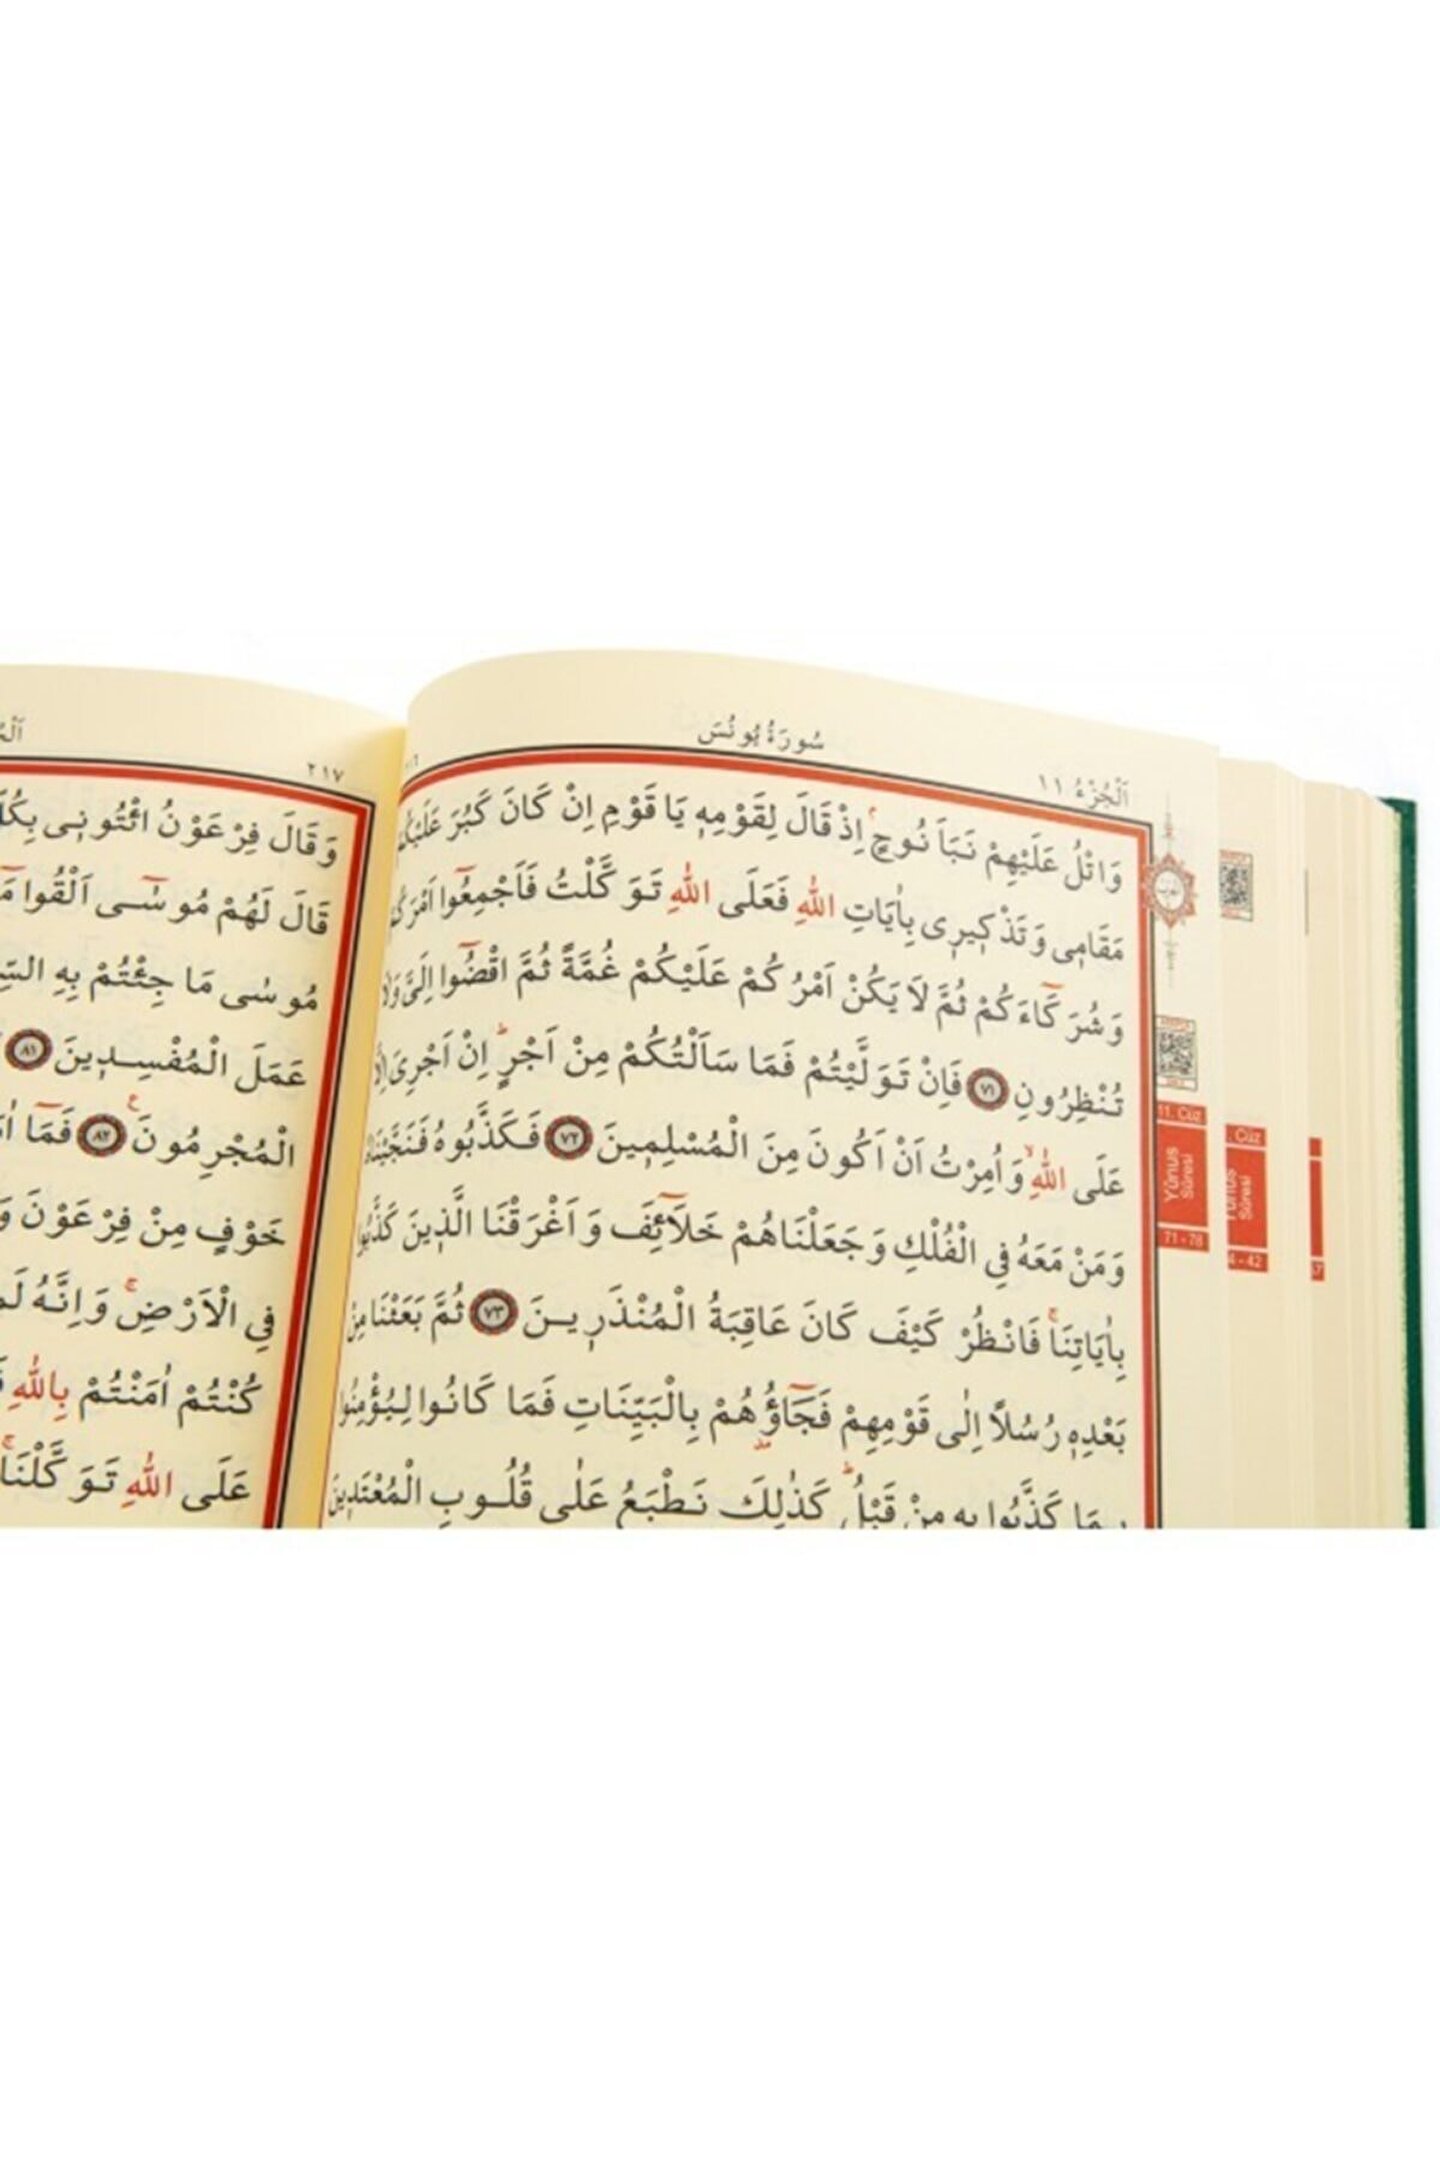 سُورَةُ يُونُسَ
اَلْجُزْءُ ١١
وَاتْلُ عَلَيْهِمْ نَبَاَ نُوحٍۢ اِذْ قَالَ لِقَوْمِه۪ يَا قَوْمِ اِنْ كَانَ كَبُرَ عَلَيْكُمْ
مَقَام۪ي وَتَذْك۪ير۪ي بِاٰيَاتِ اللّٰهِ فَعَلَى اللّٰهِ تَوَكَّلْتُ فَاَجْمِعُٓوا اَمْرَكُمْ
وَشُرَكَٓاءَكُمْ ثُمَّ لَا يَكُنْ اَمْرُكُمْ عَلَيْكُمْ غُمَّةً ثُمَّ اقْضُٓوا اِلَيَّ وَلَا
تُنْظِرُونِ ٧١ فَاِنْ تَوَلَّيْتُمْ فَمَا سَاَلْتُكُمْ مِنْ اَجْرٍۜ اِنْ اَجْرِيَ اِلَّا
عَلَى اللّٰهِۙ وَاُمِرْتُ اَنْ اَكُونَ مِنَ الْمُسْلِم۪ينَ ٧٢ فَكَذَّبُوهُ فَنَجَّيْنَاهُ
وَمَنْ مَعَهُ فِي الْفُلْكِ وَجَعَلْنَاهُمْ خَلَٓائِفَ وَاَغْرَقْنَا الَّذ۪ينَ كَذَّبُوا
بِاٰيَاتِنَاۚ فَانْظُرْ كَيْفَ كَانَ عَاقِبَةُ الْمُنْذَر۪ينَ ٧٣ ثُمَّ بَعَثْنَا مِنْ
بَعْدِه۪ رُسُلًا اِلٰى قَوْمِهِمْ فَجَٓاؤُ۫هُمْ بِالْبَيِّنَاتِ فَمَا كَانُوا لِيُؤْمِنُوا
بِمَا كَذَّبُوا بِه۪ مِنْ قَبْلُۜ كَذٰلِكَ نَطْبَعُ عَلٰى قُلُوبِ الْمُعْتَد۪ينَ
11. Cüz
Yûnus
Sûresi
71 - 78
Cüz
Sûresi
٢١٧
وَقَالَ فِرْعَوْنُ ائْتُون۪ي
قَالَ لَهُمْ مُوسٰٓى اَلْقُوا
مُوسٰى مَا جِئْتُمْ بِهِ
عَمَلَ الْمُفْسِد۪ينَ ٨١
الْمُجْرِمُونَ۟ ٨٢ فَمَٓا
خَوْفٍ مِنْ فِرْعَوْنَ
فِي الْاَرْضِۚ وَاِنَّهُ
كُنْتُمْ اٰمَنْتُمْ بِاللّٰهِ
عَلَى اللّٰهِ تَوَكَّلْنَاۚ